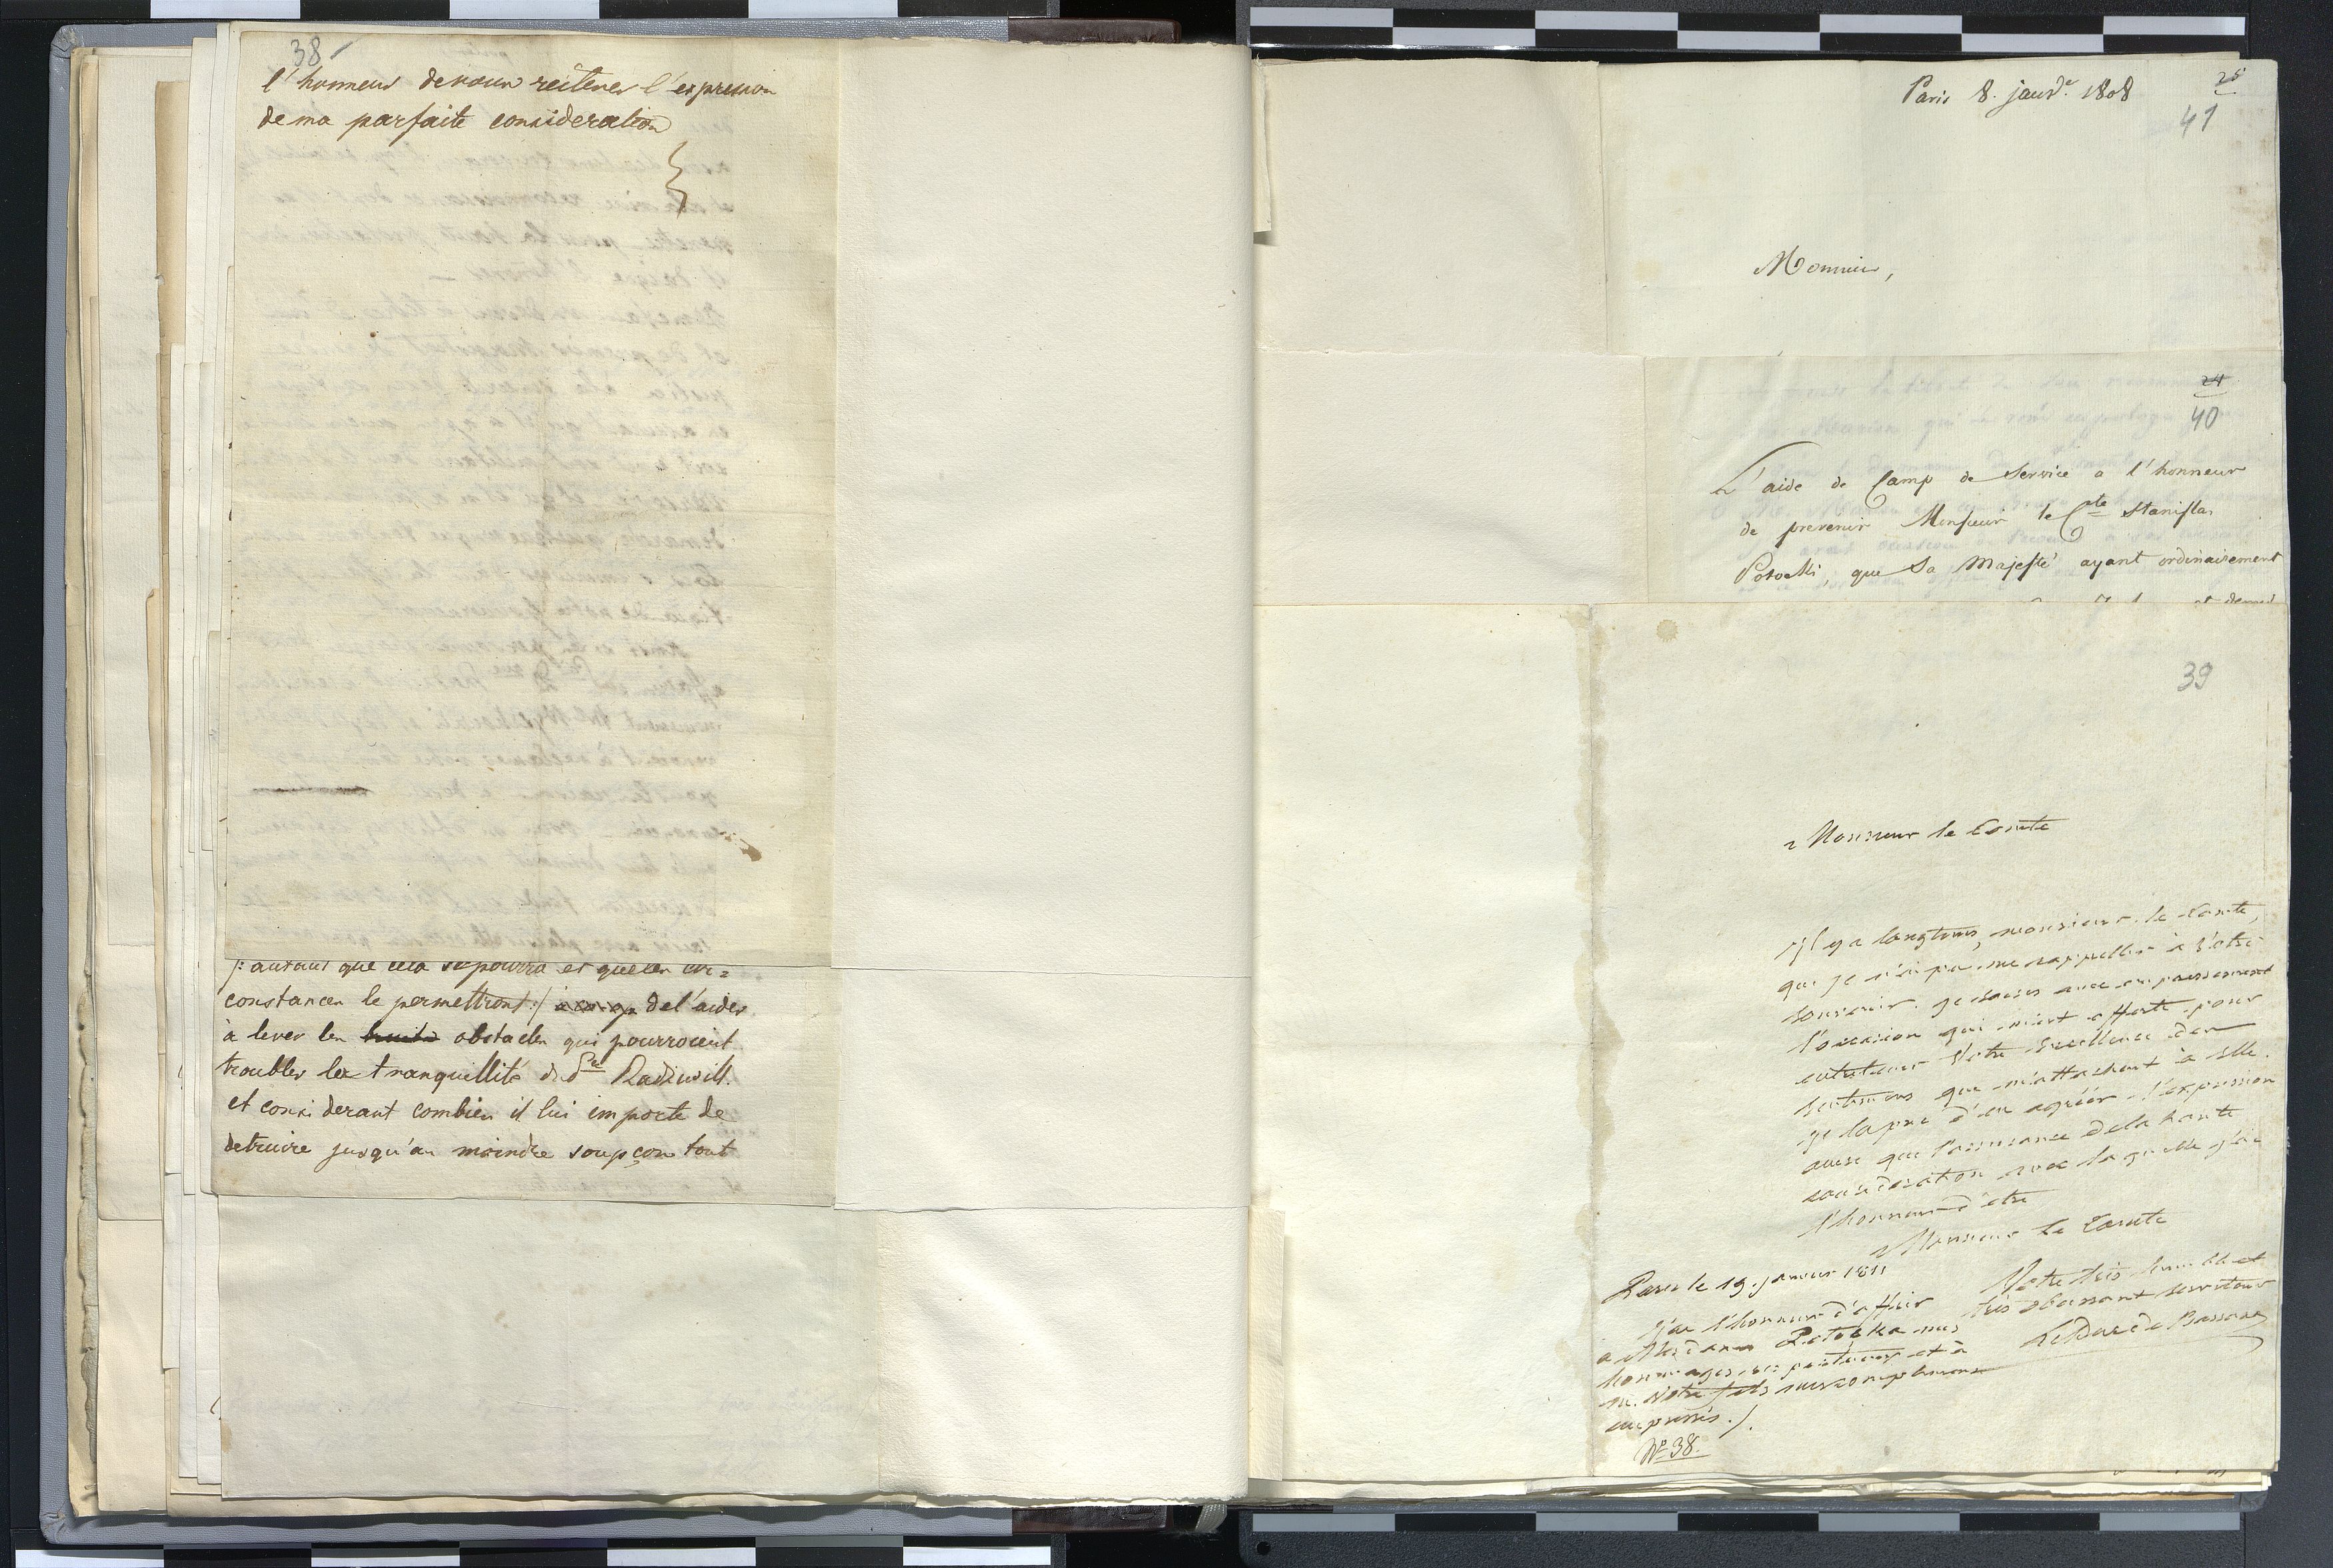 38
l'honneur de vous reïterer l'expression
de ma parfaite consideration
/: autant que cela se pourra et que les cir=
constances le permettront :/ de l'aider
à lever les obstacles qui pourroient
troubler la tranquillité du Pce Radiwill.
et considerant combien il lui importe de
detruire jusqu'au moindre soupçon tout
Paris 8. janv. 1808
25
41
Monsieur,
24
40
L'aide de Camp de Service a l'honneur
de prevenir Monsieur le Cte Stanislas
Potocki, que Sa Majesté ayant ordinairement
39
Monsieur le Comte
il y a longtems, monsieur le Comte,
que je n'ai pu me rappeller à Votre
souvenir. je saisis avec empressement
l'occasion qui m'est offerte pour
entretenir Votre Excellence des
sentimens qui m'attachent à elle.
je la prie d'en agréer l'expression
ainsi que l'assurance de la haute
consideration avec laquelle j'ai
l'honneur d'être
Monsieur le Comte
Votre très humble et
très obeissant serviteur
Le Duc de Bassano
Paris le 19. janvier 1811
j'ai l'honneur d'offrir
à Madame Potocka mes
hommages respectueux et à
m. Votre fils mes complimens
empressés ./.
No 38.